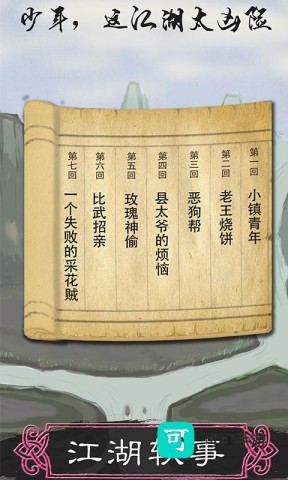 少年，这江湖太凶险
第一回 小镇青年
第二回 老王烧饼
第三回 恶狗帮
第四回 县太爷的烦恼
第五回 玫瑰神偷
第六回 比武招亲
第七回 一个失败的采花贼
江湖轶事
可